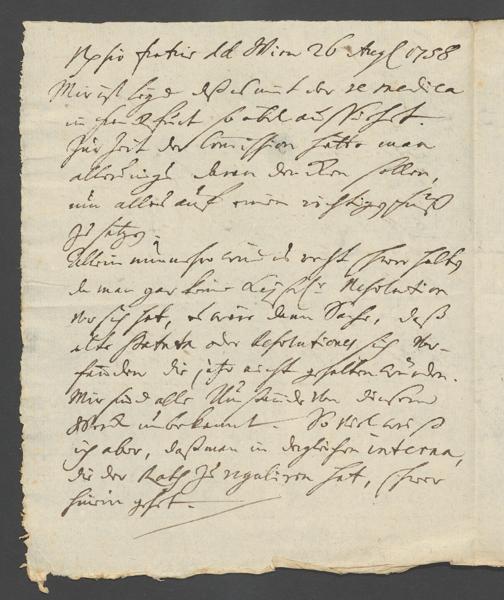 Rsio fratris dd Wien 26 Aug 1758
Mir ist leyd daß es mit der re medica
in Franckfurt so übel aussiehet.
Zur Zeit der Comission hätte man
allerdings daran dencken sollen,
um alles auf einen richtigen Fuß
zu setzen.
Allein nunmehro wird es recht schwer halten
da man gar keine Kayserl. Resolution
vor sich hat, es wäre dann Sache, daß
alte Statuta oder Resolutiones sich vor-
fänden die jetzo nicht gehalten würden.
Mir sind alle Umstände von diesem
Werck unbekannt. So viel weiß
ich aber, daß man in dergleichen interna,
die der Rath zu reguliren hat, schwer
hinein gehet.